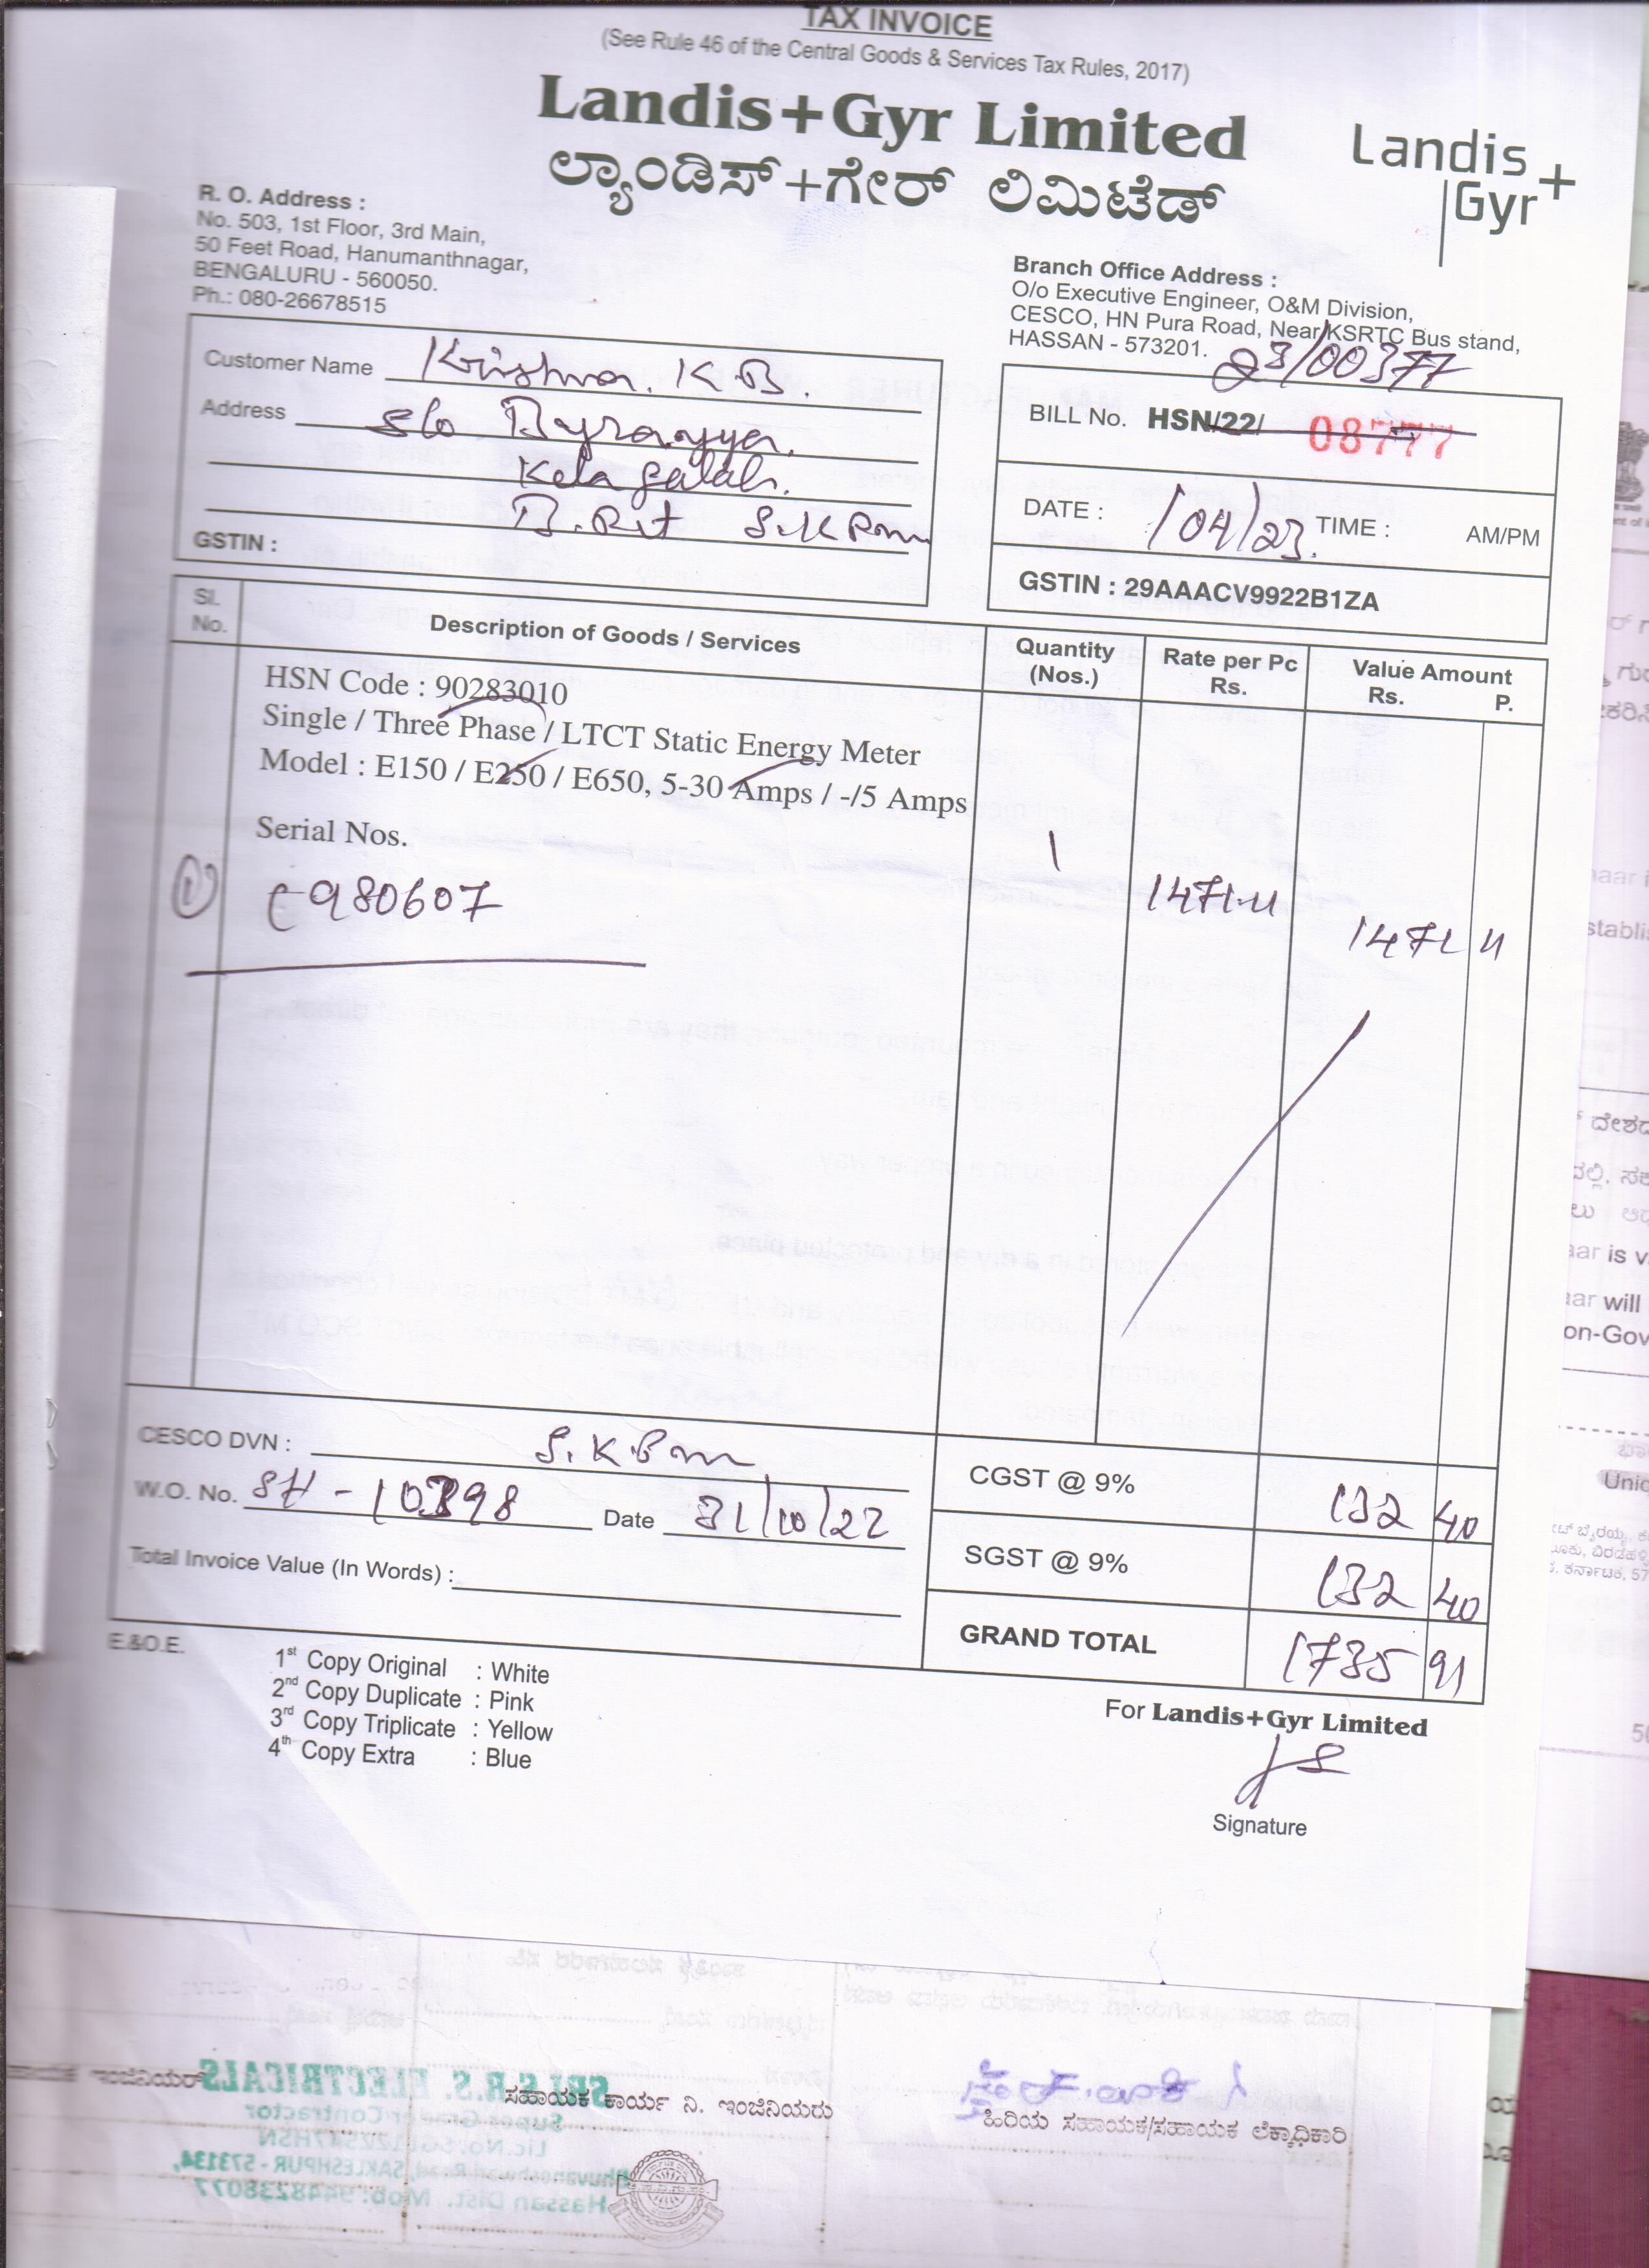 TAX INVOICE
(See Rule 46 of the Central Goods & Services Tax Rules, 2017)
Landis+Gyr Limited
ಲ್ಯಾಂಡಿಸ್+ಗೇರ್ ಲಿಮಿಟೆಡ್
Landis
Gyr+
R. O. Address :
No. 503, 1st Floor, 3rd Main,
50 Feet Road, Hanumanthnagar,
BENGALURU - 560050.
Ph.: 080-26678515
Branch Office Address :
O/o Executive Engineer, O&M Division,
CESCO, HN Pura Road, Near KSRTC Bus stand,
HASSAN - 573201.
23/00377
Customer Name Krishna. K B.
Address S/o Byrayya.
GSTIN :
BILL No. HSN/22/ 08777
DATE : /04/23. TIME : AM/PM
GSTIN : 29AAACV9922B1ZA
Sl. No. Description of Goods / Services Quantity (Nos.) Rate per Pc Rs. Value Amount Rs. P.
HSN Code : 90283010
Single / Three Phase / LTCT Static Energy Meter
Model : E150 / E250 / E650, 5-30 Amps / -/5 Amps
Serial Nos.
1 980607 1 1471.11 1471 11
CESCO DVN : S.K.Pm
W.O. No. SH - 10398 Date 31/10/22
Total Invoice Value (In Words) :
CGST @ 9% 132 40
SGST @ 9% 132 40
GRAND TOTAL 1735 91
E.&O.E.
1st Copy Original : White
2nd Copy Duplicate : Pink
3rd Copy Triplicate : Yellow
4th Copy Extra : Blue
For Landis+Gyr Limited
Signature
ಸಹಾಯಕ ಕಾರ್ಯ ನಿ. ಇಂಜಿನಿಯರು
ಹಿರಿಯ ಸಹಾಯಕ/ಸಹಾಯಕ ಲೆಕ್ಕಾಧಿಕಾರಿ